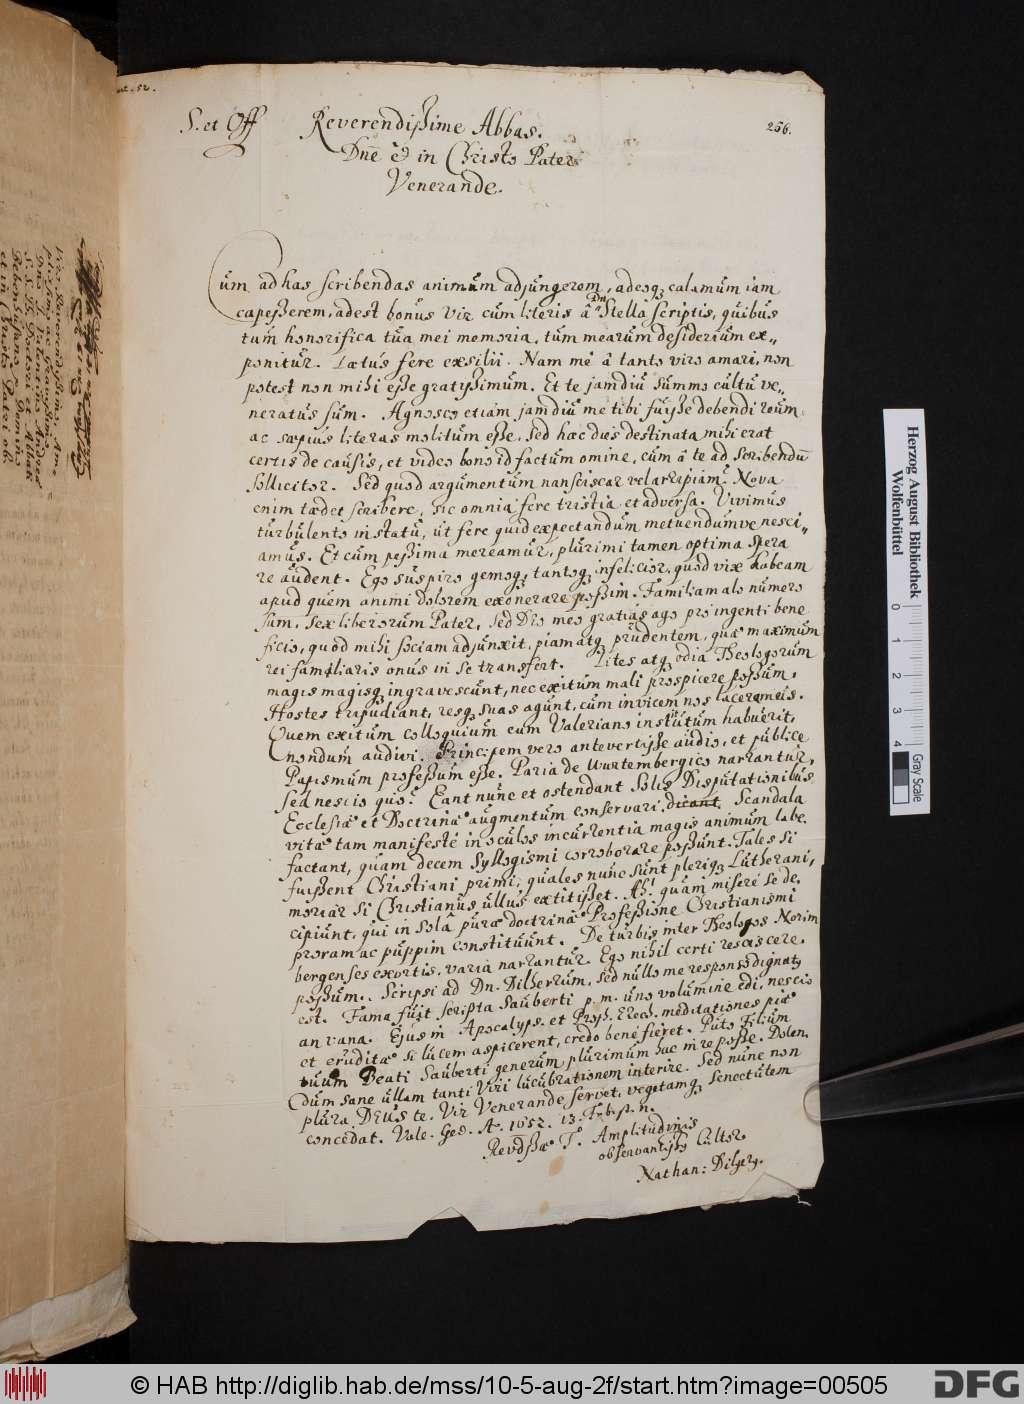 S. et Off
Reverendißime Abbas.
256.
Dnē & in Christo Pater
Venerande.
Cùm ad has scribendas animum adjungerem, adeoq; calamum iam
capeßerem, adest bonus vir cùm literis â Dn Stellâ scriptis, quibus
tum honorifica tua mei memoria, tum mearum desiderium ex-
ponitur. Lætus fere exsilii. Nam me â tanto viro amari, non
potest non mihi eße gratißimum. Et te jamdiu summo cultu ve-
neratus sum. Agnosco etiam jamdiu me tibi fuiße debendi reum
ac sæpius literas molitum eße, sed hæc dies destinata mihi erat
certis de causis, et video bono id factum omine, cùm â te ad scribendū
sollicitor. Sed quod argumentum nanciscar vel arripiam? Nova
enim tædet scribere, sic omnia fere tristia et adversa. Vivimus
turbulento in statu, ut fere quid expectandum metuendumve nesci-
amus. Et cum peßima mereamur, plurimi tamen optima spera
re audent. Ego suspiro gemoq; tantoq; infelicior, quod vix habeam
apud quem animi dolorem exonerare poßim. Familiam alo numero
sam, sex liberorum Pater, sed Deo meo gratias ago pro ingenti bene
ficio, quòd mihi sociam adjunxit, piam atq; prudentem, quæ maximum
rei familiaris onus in se transfert. Lites atq; odia Theologorum
magis magisq; ingravescunt, nec exitum mali prospicere poßum.
Hostes tripudiant, resq; suas agunt, cùm invicem nos laceremus.
Quem exitum colloquium cum Valeriano institutum habuerit,
nondum audivi. Principem vero antevertiße audio, et publice
Papismum profeßum eße. Paria de Wurtembergico narrantur,
sed nescio quo? Eant nunc et ostendant solis Disputationibus
Ecclesiæ et Doctrinæ augmentum conservari, dicant. Scandala
vitæ tam manifestè in oculos incurrentia magis animum labe
factant, quam decem syllogismi corroborare poßunt. Tales si
fuißent Christiani primi, quales nunc sunt pleriq; Lutherani,
moriar si Christianus ullus extitißet. Ah! quam miserè se de
cipiunt, qui in sola puræ doctrinæ Profeßione Christianismi
proram ac puppim constituunt. De turbis inter Theologos Norim
bergenses exortis, varia narrantur. Ego nihil certi resciscere
poßum. Scripsi ad Dn. Dilherrum, sed nullo me responso dignatq
est. Fama fuit scripta Sauberti p. m. uno volumine edi, nescio
an vana. Ejus in Apocalyps. et Proph. Ezech. meditationes piæ
et eruditæ si lucem aspicerent, credo bene fieret. Puto Filium
Beati Sauberti generum plurimum hac in re poße. Dolen
dum sane ullam tanti Viri lucubrationem interire. Sed nunc non
plura. DEUS te, Vir Venerande servet, vegetamq; senectutem
concedat. Vale. Ged. A. 1652. 13.
Revdßæ T. Amplitudinis
observantißq Cultor
Nathan: Dilgerq.
Herzog August Bibliothek
Wolfenbüttel
0 1 2 3 4
Gray Scale
© HAB http://diglib.hab.de/mss/10-5-aug-2f/start.htm?image=00505
DFG